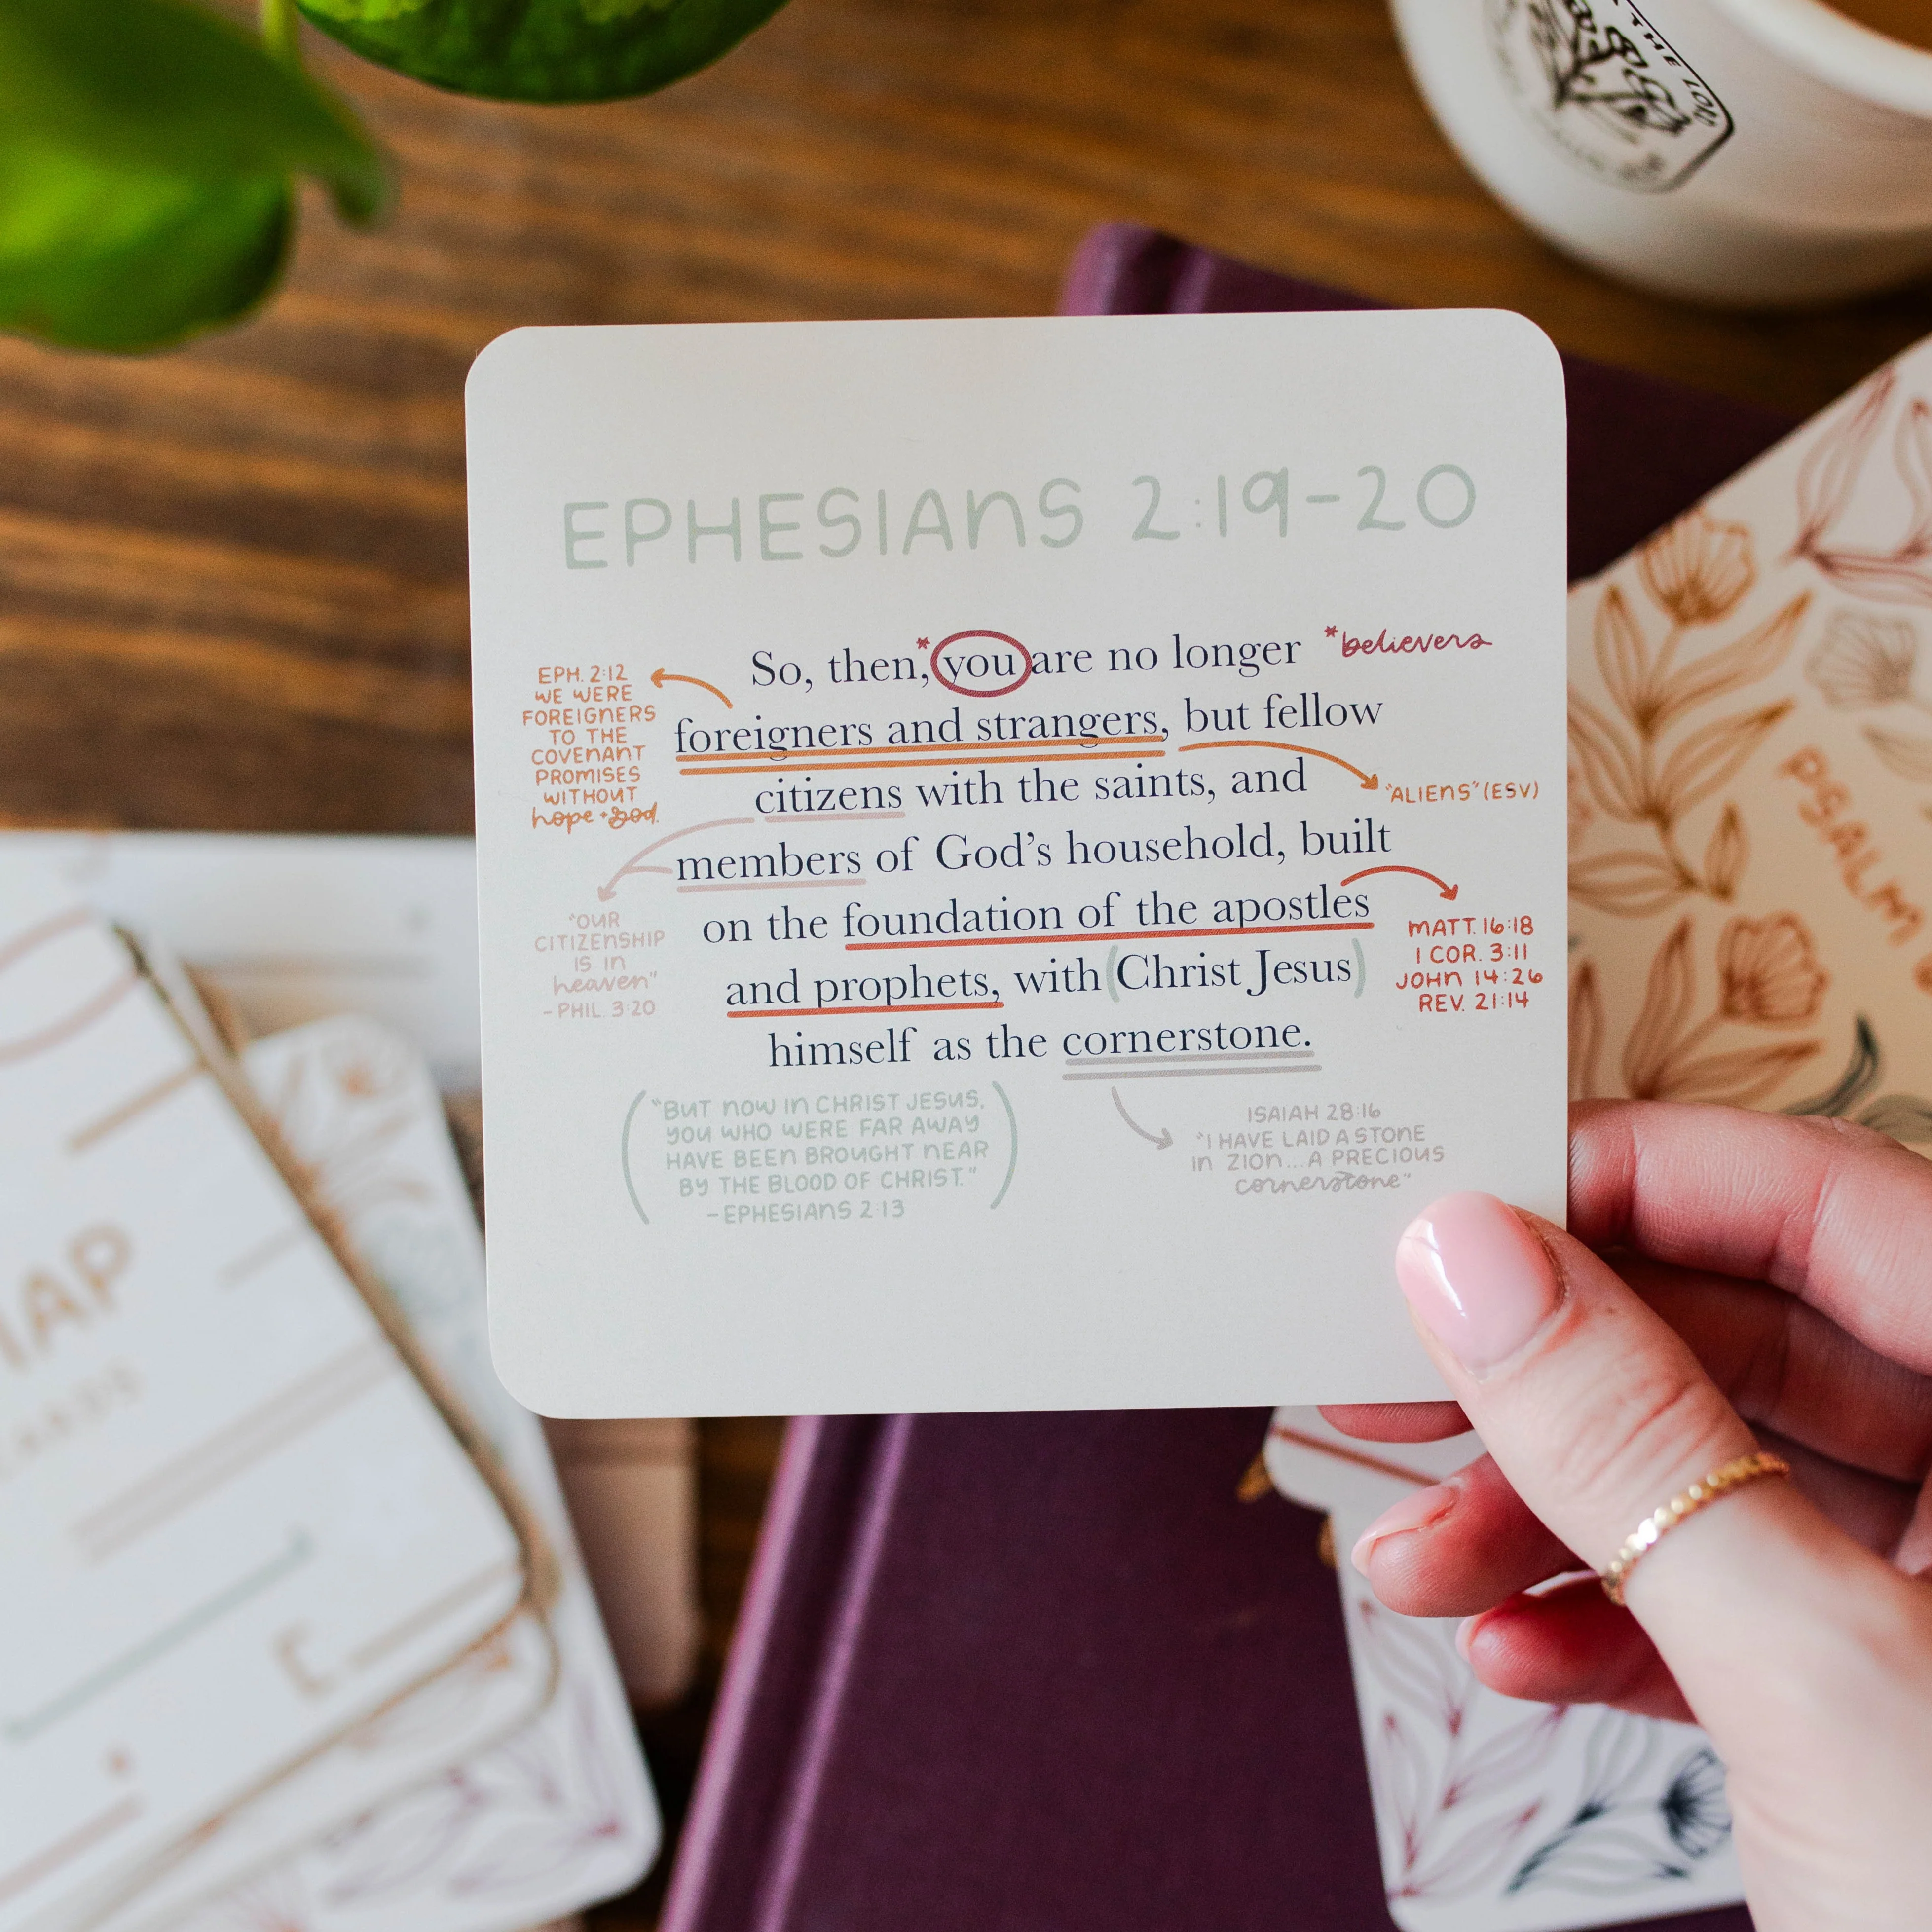 THE LOR
EPHESIANS 2:19-20
So, then,* you are no longer
*believers
foreigners and strangers, but fellow
citizens with the saints, and
members of God's household, built
on the foundation of the apostles
and prophets, with (Christ Jesus)
himself as the cornerstone.
EPH. 2:12
WE WERE
FOREIGNERS
TO THE
COVENANT
PROMISES
WITHOUT
hope + God.
"ALIENS" (ESV)
"OUR
CITIZENSHIP
IS IN
heaven"
- PHIL. 3:20
MATT. 16:18
1 COR. 3:11
JOHN 14:26
REV. 21:14
("BUT NOW IN CHRIST JESUS,
YOU WHO WERE FAR AWAY
HAVE BEEN BROUGHT NEAR
BY THE BLOOD OF CHRIST."
- EPHESIANS 2:13)
ISAIAH 28:16
"I HAVE LAID A STONE
IN ZION...A PRECIOUS
cornerstone"
PSALM